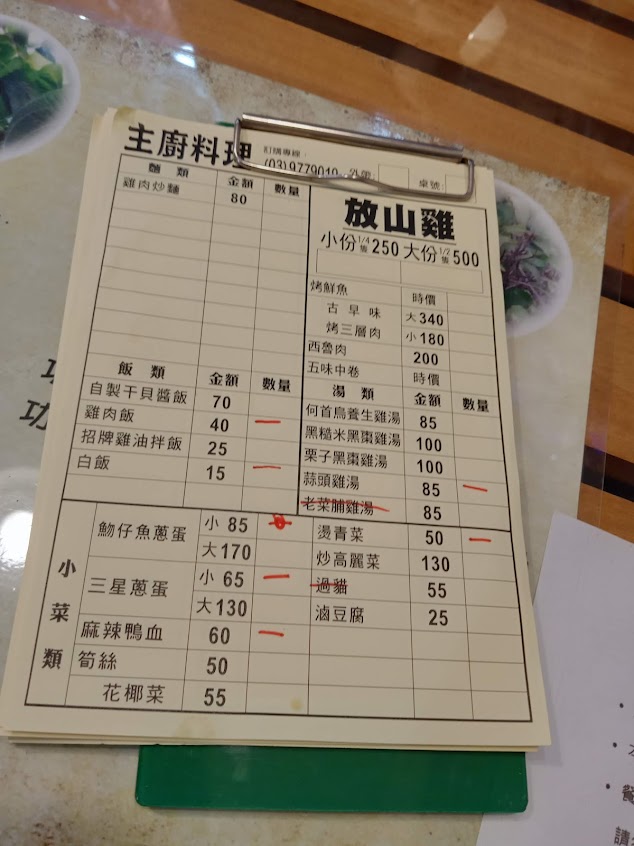 主廚料理
訂購專線：
(03)9779010 外帶 桌號
麵類 金額 數量
雞肉炒麵 80
放山雞
小份1/4隻250 大份1/2隻500
烤鮮魚 時價
古早味 大340
烤三層肉 小180
西魯肉 200
五味中卷 時價
飯類 金額 數量
自製干貝醬飯 70
雞肉飯 40
招牌雞油拌飯 25
白飯 15
湯類 金額 數量
何首烏養生雞湯 85
黑糙米黑棗雞湯 100
栗子黑棗雞湯 100
蒜頭雞湯 85
老菜脯雞湯 85
小菜類
魩仔魚蔥蛋 小 85
大 170
三星蔥蛋 小 65
大 130
麻辣鴨血 60
筍絲 50
花椰菜 55
燙青菜 50
炒高麗菜 130
過貓 55
滷豆腐 25
功